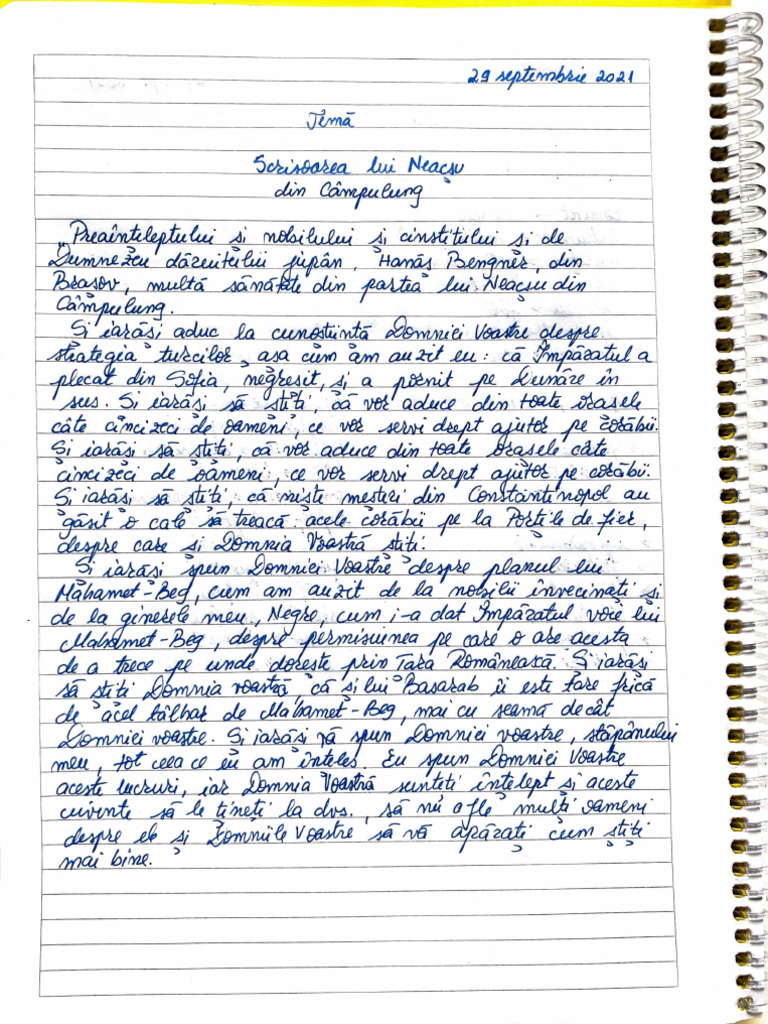 29 septembrie 2021
Temă
Scrisoarea lui Neacșu
din Câmpulung
Preaînțeleptului și nobilului și cinstitului și de
Dumnezeu dăruitului jupân, Hanăș Bengner, din
Brașov, multă sănătate din partea lui Neacșu din
Câmpulung.
Și iarăși aduc la cunoștiință Domniei Voastre despre
strategia turcilor, așa cum am auzit eu: că Împăratul a
plecat din Sofia, negreșit, și a pornit pe Dunăre în
sus. Și iarăși să știți, că vor aduce din toate orașele
câte cincizeci de oameni, ce vor servi drept ajutor pe corăbii.
Și iarăși să știți, că vor aduce din toate orașele câte
cincizeci de oameni, ce vor servi drept ajutor pe corăbii.
Și iarăși să știți, că niște meșteri din Constantinopol au
găsit o cale să treacă acele corăbii pe la Porțile de fier,
despre care și Domnia Voastră știți.
Și iarăși spun Domniei Voastre despre planul lui
Mahamet-Beg, cum am auzit de la nobilii învecinați și
de la ginerele meu, Negre, cum i-a dat Împăratul voie lui
Mahamet-Beg, despre permisiunea pe care o are acesta
de a trece pe unde dorește prin Țara Românească. Și iarăși
să știți Domnia voastră, că și lui Basarab îi este tare frică
de acel tâlhar de Mahamet-Beg, mai cu seamă decât
Domniei voastre. Și iarăși vă spun Domniei voastre, stăpânului
meu, tot ceea ce eu am înțeles. Eu spun Domniei Voastre
aceste lucruri, iar Domnia Voastră sunteți înțelept și aceste
cuvinte să le țineți la dvs., să nu afle mulți oameni
despre ele și Domniile Voastre să vă apărați cum știți
mai bine.